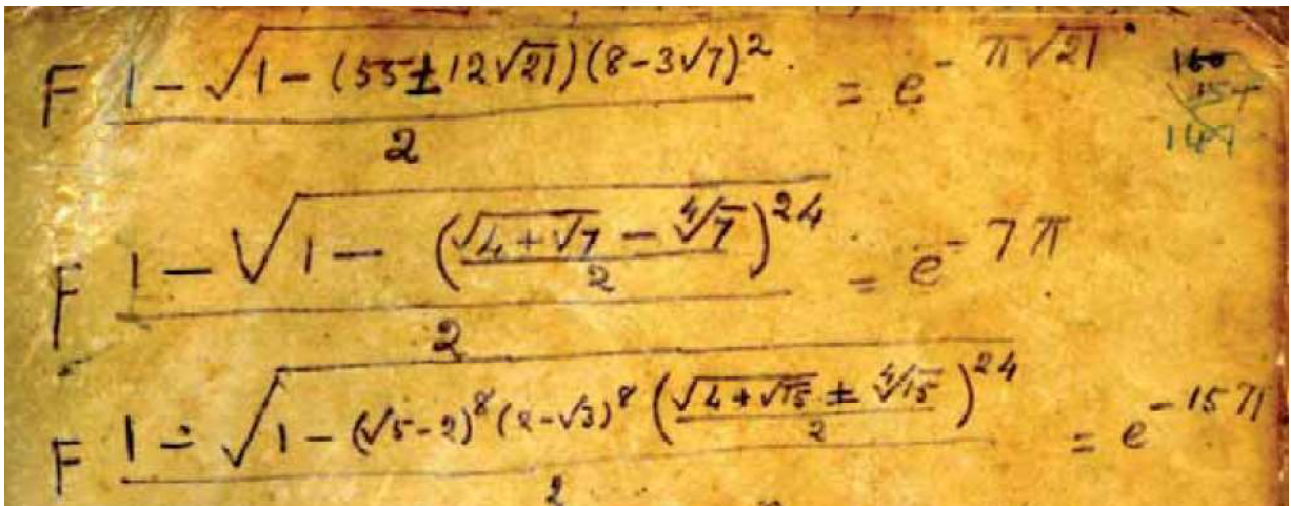 F (1 - √(1 - (55 ± 12√21)(8 - 3√7)²))/2 = e^(-π√21)
F (1 - √(1 - ((√(4 + √7) - ∜7)/2)^24))/2 = e^(-7π)
F (1 - √(1 - (√5 - 2)^8 (2 - √3)^8 ((√(4 + √15) ± ∜15)/2)^24))/2 = e^(-15π)